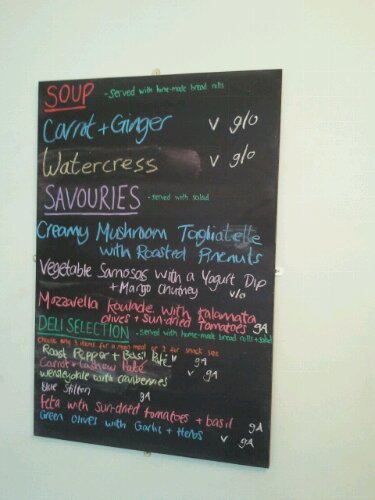 SOUP - served with home-made bread rolls
Carrot + Ginger v g/o
Watercress v g/o
SAVOURIES - served with salad
Creamy Mushroom Tagliatelle
with Roasted Pinenuts
Vegetable Samosas with a Yogurt Dip
+ Mango chutney v/o
Mozzarella Roulade with Kalamata
olives + sun-dried tomatoes gA
DELI SELECTION - served with home-made bread rolls + salad
choose any 3 items for a main meal or 2 for snack size
Roast Pepper + Basil Paté v gA
Carrot + Cashew Paté v gA
Wensleydale with cranberries
Blue Stilton gA
Feta with sun-dried tomatoes + basil gA
Green olives with Garlic + Herbs v gA